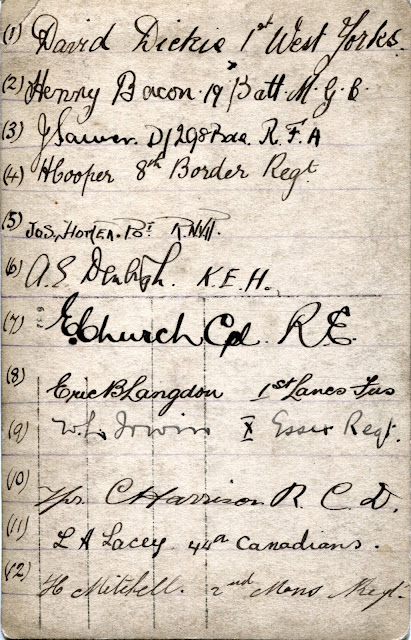 (1) David Dickie 1st West Yorks.
(2) Henry Bacon. 19 Batt M.G.C.
(3) J Sawer. D/298 Bde. R.F.A
(4) A Hooper 8th Border Regt
(5) Jos. Homer. R.N.D.
(6) A.E Denbigh. K.E.H.
(7) E. Church Cpl. R.E.
(8) Eric B Langdon 1st Lancs Fus
(9) W.L. Irwin X Essex Regt.
(10) Tpr. C Harrison R.C.D.
(11) L A Lacey 44th Canadians.
(12) H Mitchell. 2nd Mons Regt.